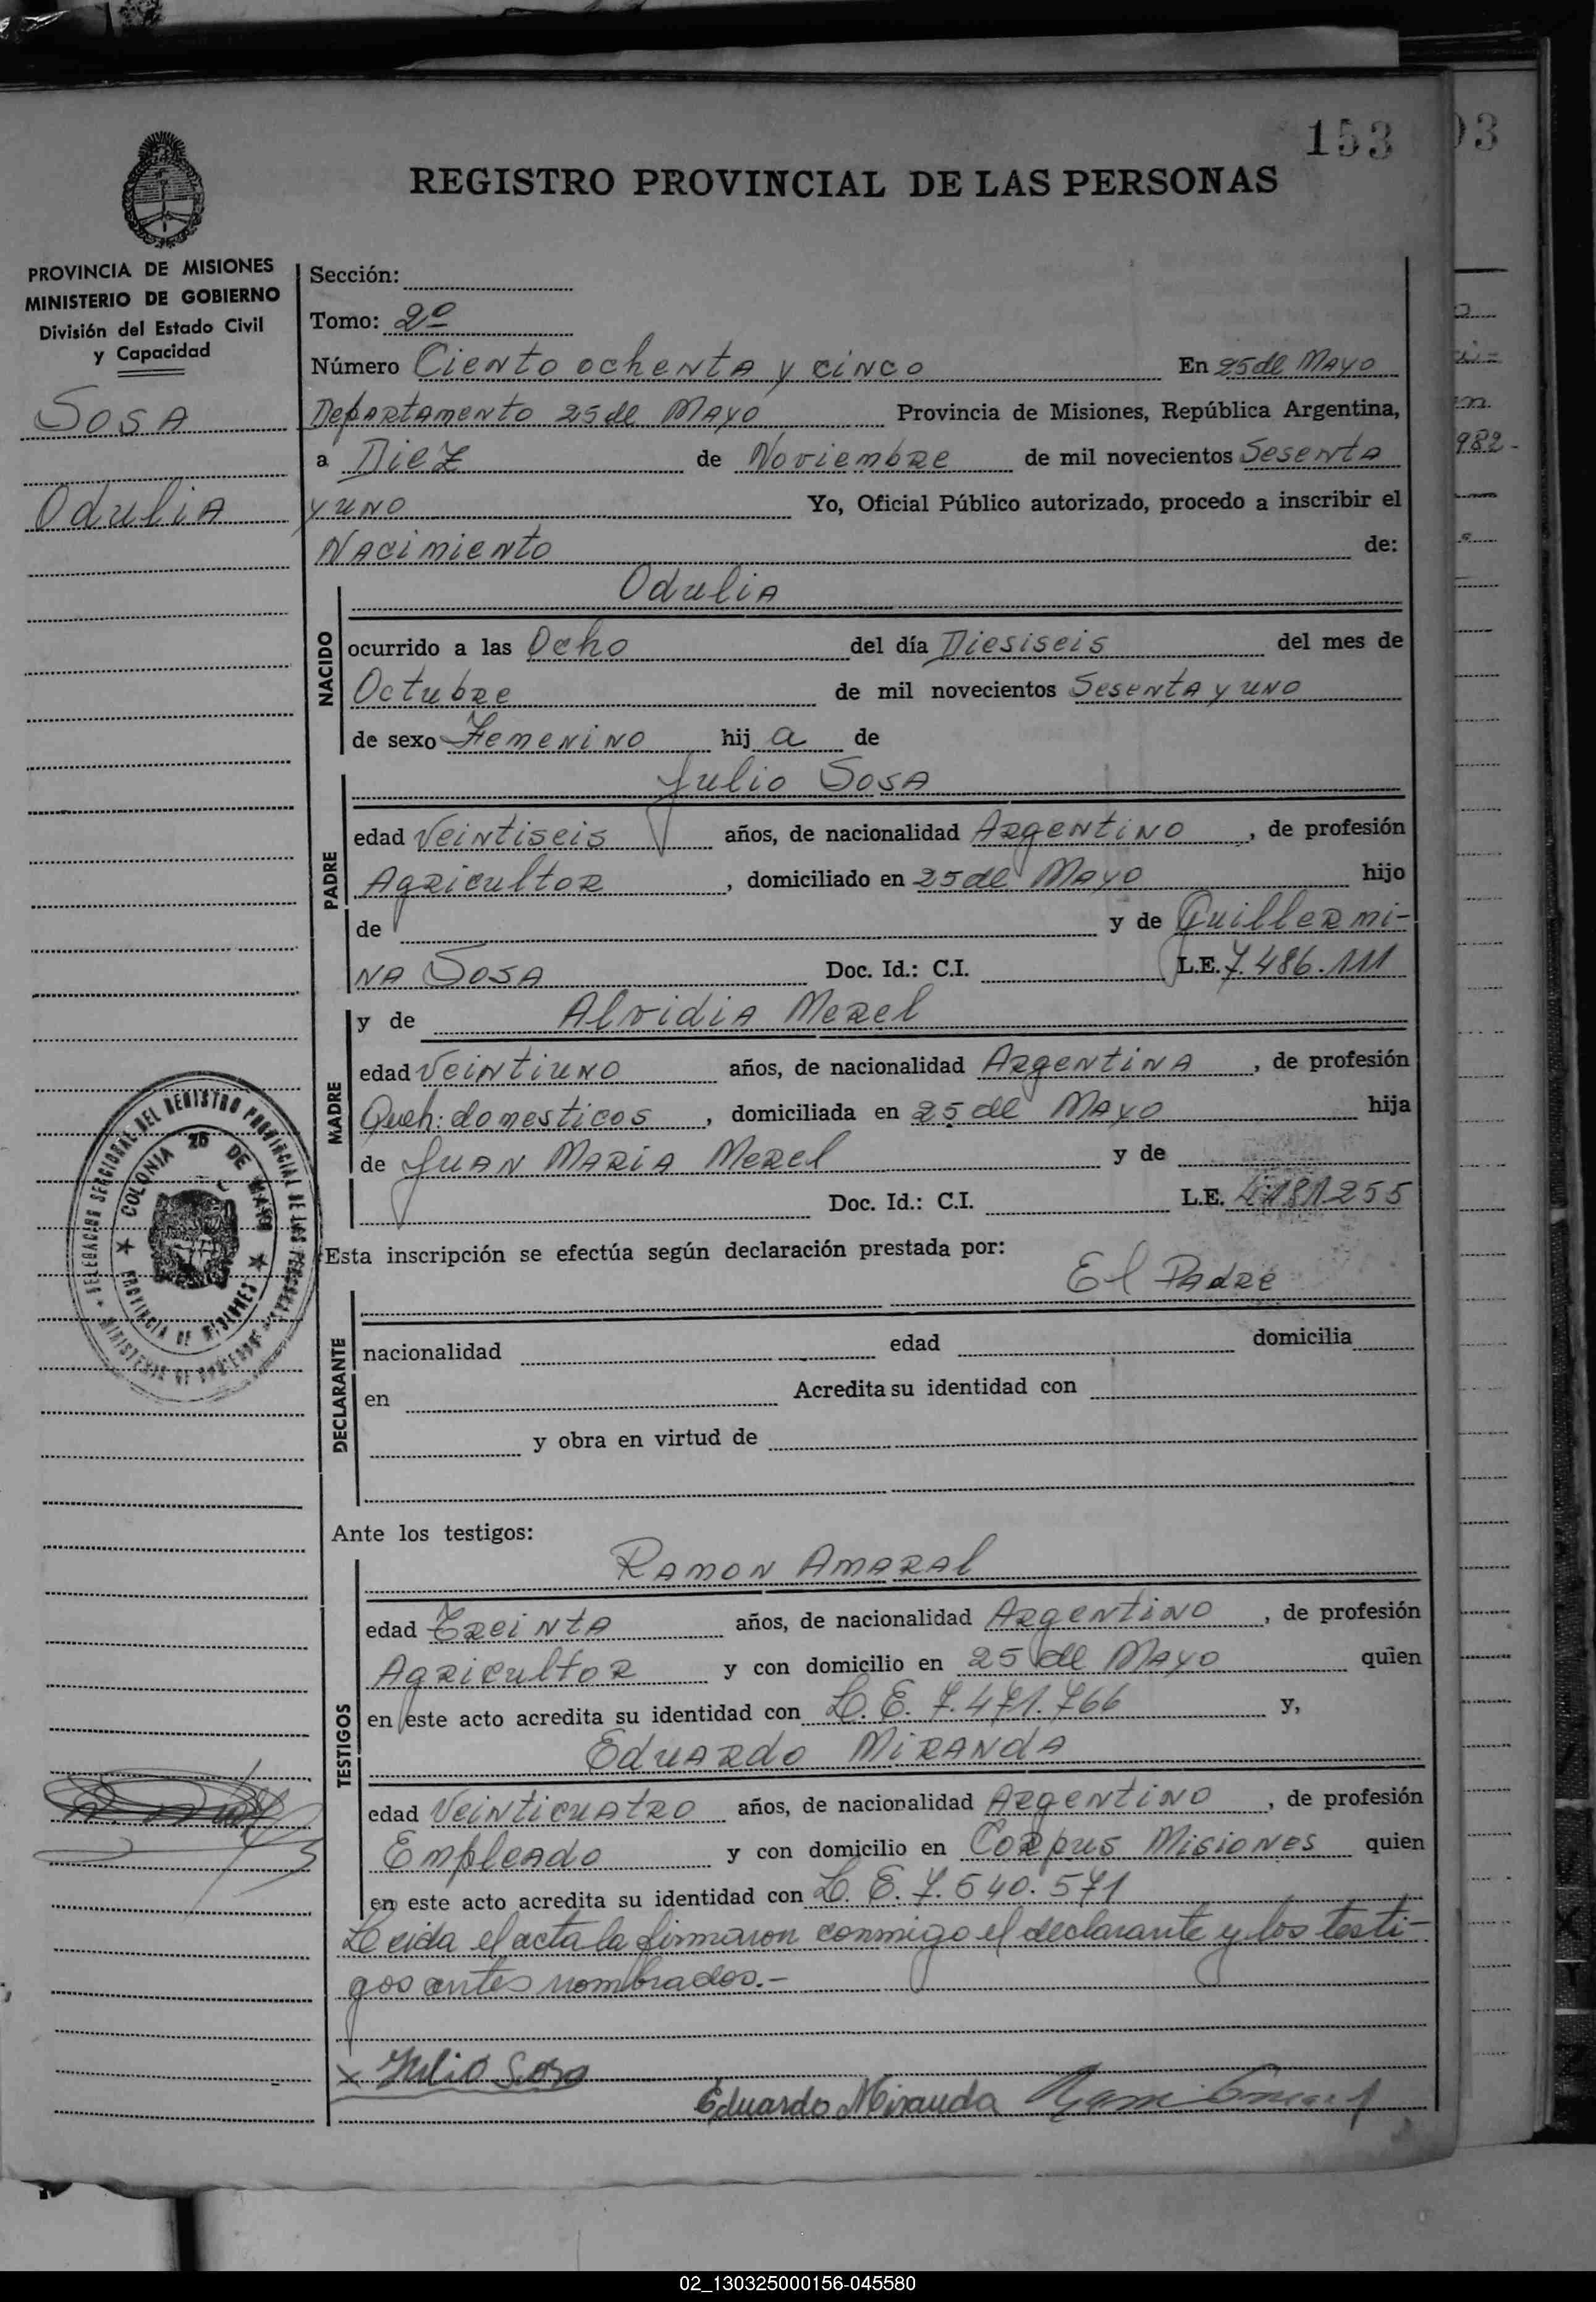 153
93
REGISTRO PROVINCIAL DE LAS PERSONAS
PROVINCIA DE MISIONES
MINISTERIO DE GOBIERNO
División del Estado Civil
y Capacidad
Sosa
Odulia
Sección:
Tomo: 2º
Número Ciento ochenta y cinco En 25 de Mayo
Departamento 25 de Mayo Provincia de Misiones, República Argentina,
a Diez de Noviembre de mil novecientos Sesenta
y uno Yo, Oficial Público autorizado, procedo a inscribir el
Nacimiento de:
NACIDO
Odulia
ocurrido a las Ocho del día Diesiseis del mes de
Octubre de mil novecientos Sesenta y uno
de sexo Femenino hij a de
PADRE
Julio Sosa
edad Veintiseis años, de nacionalidad Argentino, de profesión
Agricultor, domiciliado en 25 de Mayo hijo
de y de Guillermi-
na Sosa Doc. Id.: C.I. L.E. 7.486.111
MADRE
y de Alvidia Merel
edad Veintiuno años, de nacionalidad Argentina, de profesión
Queh: domesticos, domiciliada en 25 de Mayo hija
de Juan Maria Merel y de
Doc. Id.: C.I. L.E. 4.181.255
Esta inscripción se efectúa según declaración prestada por:
El Padre
DECLARANTE
nacionalidad edad domicilia
en Acredita su identidad con
y obra en virtud de
Ante los testigos:
TESTIGOS
Ramon Amaral
edad Treinta años, de nacionalidad Argentino, de profesión
Agricultor y con domicilio en 25 de Mayo quien
en este acto acredita su identidad con L. E. 7.471.766 y,
Eduardo Miranda
edad Veinticuatro años, de nacionalidad Argentino, de profesión
Empleado y con domicilio en Corpus Misiones quien
en este acto acredita su identidad con L. E. 7.540.571
Leida el acta la firmaron conmigo el declarante y los testi-
gos antes nombrados.-
x Julio Sosa
Eduardo Miranda
DELEGACION SECCIONAL DEL REGISTRO PROVINCIAL DE LAS PERSONAS
MINISTERIO DE GOBIERNO
COLONIA 25 DE MAYO
PROVINCIA DE MISIONES
982-
02_130325000156-045580